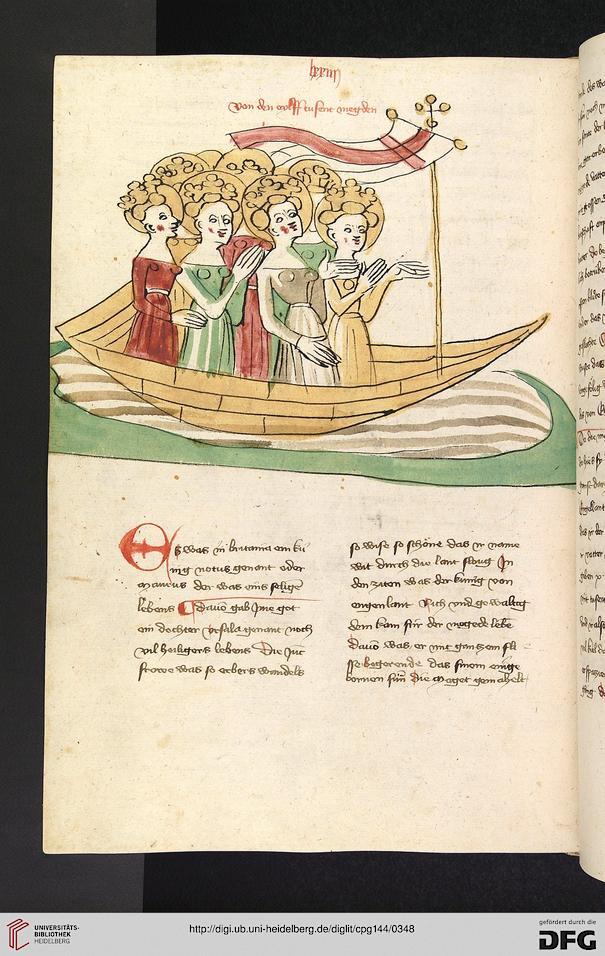 von den eylff tusent megden
Es was in britania ein kü
nig notus genant oder
maurus der was eins selige
lebens davō gab Jme got
ein dochter vrsula genant noch
vil heiligers lebens Die Jūc
frowe was so erbers wandels
so wise so schöne das ir name
wit durch die lant floug Jn
den ziten was der künig von
engenlant Rich vnd gewaltig
dem kam für der megede lebē
davō was er mit ganczem fli
sse begerende das sinem einige
bornen sün die maget gemahelt
UNIVERSITÄTS-
BIBLIOTHEK
HEIDELBERG
http://digi.ub.uni-heidelberg.de/diglit/cpg144/0348
gefördert durch die
DFG